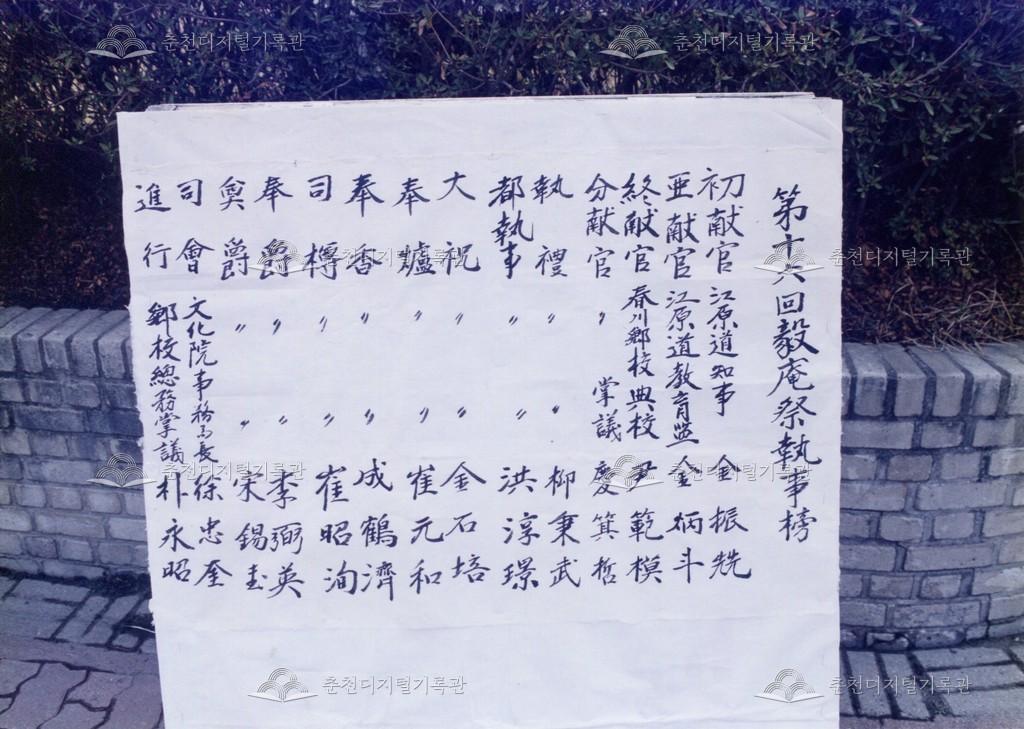 第十六回毅庵祭執事榜
初献官 江原道知事 金振兟
亜献官 江原道教育監 金炳斗
終献官 春川鄉校典校 尹範模
分献官 〃 掌議 慶箕哲
執禮 〃 〃 柳秉武
都執事 〃 〃 洪淳璟
大祝 〃 〃 金石培
奉爐 〃 〃 崔元和
奉香 〃 〃 成鶴濟
司樽 〃 〃 崔昭洵
奉爵 〃 〃 李弼英
奠爵 〃 〃 宋錫圭
司會 文化院事務局長 徐忠奎
進行 鄉校總務掌議 朴永昭
춘천디지털기록관
춘천디지털기록관
춘천디지털기록관
춘천디지털기록관
춘천디지털기록관
춘천디지털기록관
춘천디지털기록관
춘천디지털기록관
춘천디지털기록관
춘천디지털기록관